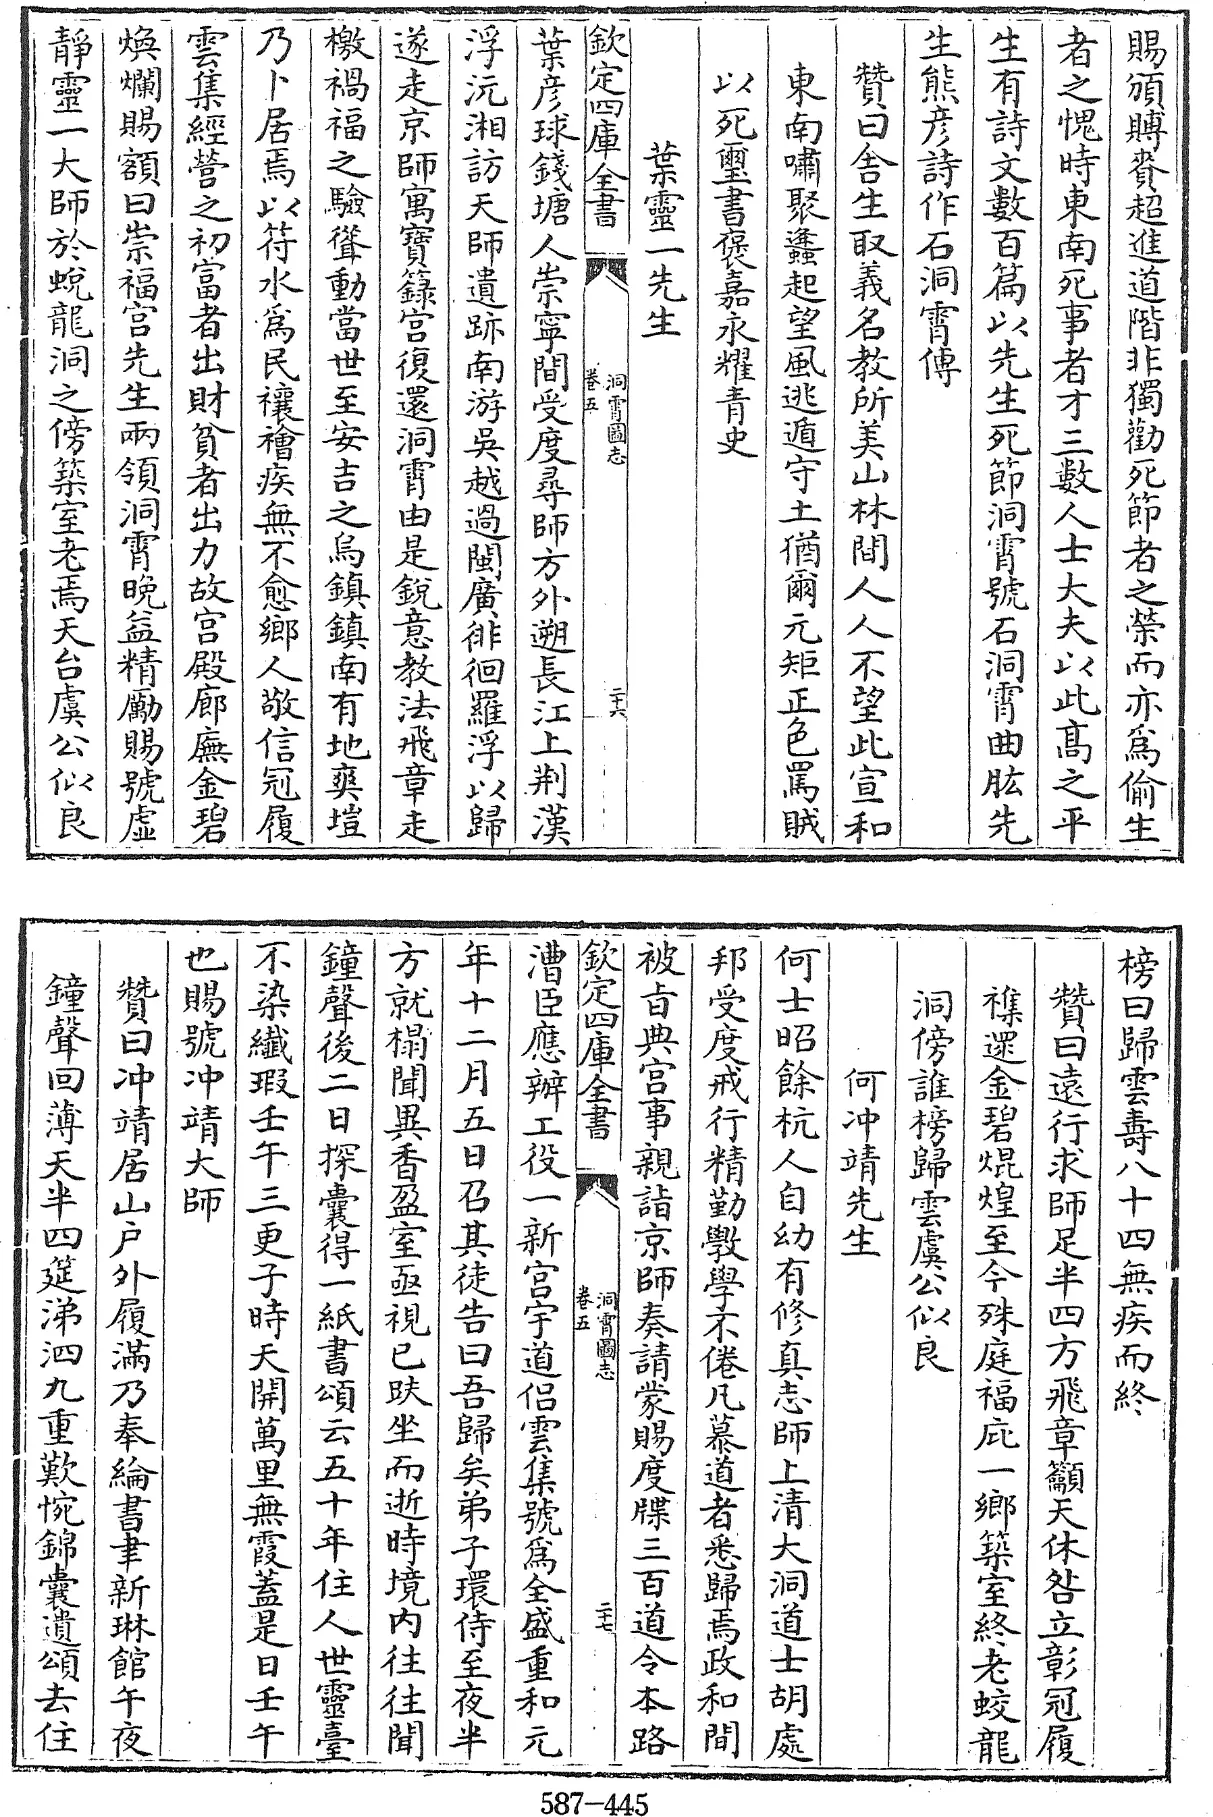 賜頒賻賚超進道階非獨勸死節者之榮而亦爲偷生
者之愧時東南死事者才三數人士大夫以此髙之平
生有詩文數百篇以先生死節洞霄號石洞霄曲肱先
生熊彦詩作石洞霄傳
贊曰舎生取義名教所美山林間人人不望此宣和
東南嘯聚蠭起望風逃遁守土猶爾元矩正色罵賊
以死璽書褒嘉永耀青史
葉靈一先生
欽定四庫全書
洞霄圖志
卷五
二十六
葉彦球錢塘人崇寧間受度尋師方外遡長江上荆漢
浮沅湘訪天師遺跡南游吳越過閩廣徘徊羅浮以歸
遂走京師寓寶籙宫復還洞霄由是鋭意教法飛章走
檄禍福之驗聳動當世至安吉之烏鎮鎮南有地爽塏
乃卜居焉以符水爲民禳禬疾無不愈鄉人敬信冠履
雲集經營之初富者出財貧者出力故宫殿廊廡金碧
煥爛賜額曰崇福宫先生兩領洞霄晩益精勵賜號虚
靜靈一大師於蛻龍洞之傍築室老焉天台虞公似良
榜曰歸雲壽八十四無疾而終
贊曰遠行求師足半四方飛章籲天休咎立彰冠履
襍遝金碧焜煌至今殊庭福庇一鄉築室終老蛟龍
洞傍誰榜歸雲虞公似良
何冲靖先生
何士昭餘杭人自幼有修真志師上清大洞道士胡處
邦受度戒行精勤斆學不倦凡慕道者悉歸焉政和間
被㫖典宫事親詣京師奏請蒙賜度牒三百道令本路
欽定四庫全書
洞霄圖志
卷五
二十七
漕臣應辦工役一新宫宇道侣雲集號爲全盛重和元
年十二月五日召其徒告曰吾歸矣弟子環侍至夜半
方就榻聞異香盈室亟視已趺坐而逝時境内往往聞
鐘聲後二日探囊得一紙書頌云五十年住人世靈臺
不染纖瑕壬午三更子時天開萬里無霞蓋是日壬午
也賜號冲靖大師
贊曰冲靖居山户外履滿乃奉綸書聿新琳館午夜
鐘聲回薄天半四筵涕泗九重歎惋錦囊遺頌去住
587-445